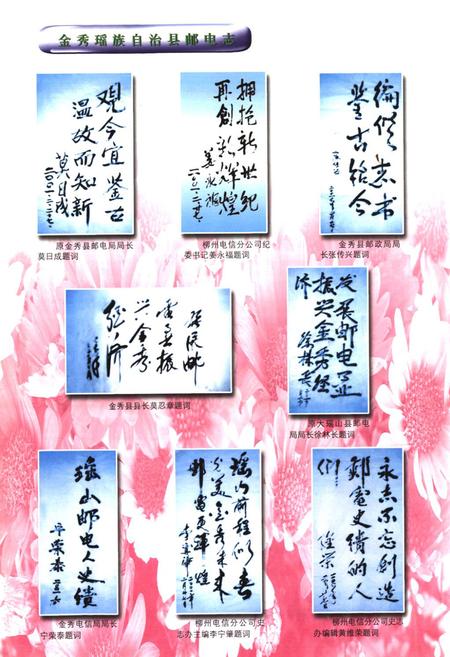 金秀瑶族自治县邮电志
观今宜鉴古
温故而知新
莫日成
原金秀县邮电局局长
莫日成题词
拥抱新世纪
再创新辉煌
姜永福
柳州电信分公司纪
委书记姜永福题词
编修志书
鉴古铭今
金秀县邮政局局
长张传兴题词
发展邮
电事业振
兴金秀
经济
金秀县县长莫忍章题词
发展邮电事业
振兴金秀经
济
徐林长
原大瑶山县邮电
局局长徐林长题词
瑶山邮电人史绩
宁荣泰
金秀电信局局长
宁荣泰题词
瑶山前程似春
邮电更辉煌
李宁肇
柳州电信分公司史
志办主编李宁肇题词
永志不忘创造
邮电史绩的人
们
维荣
柳州电信分公司史志
办编辑黄维荣题词